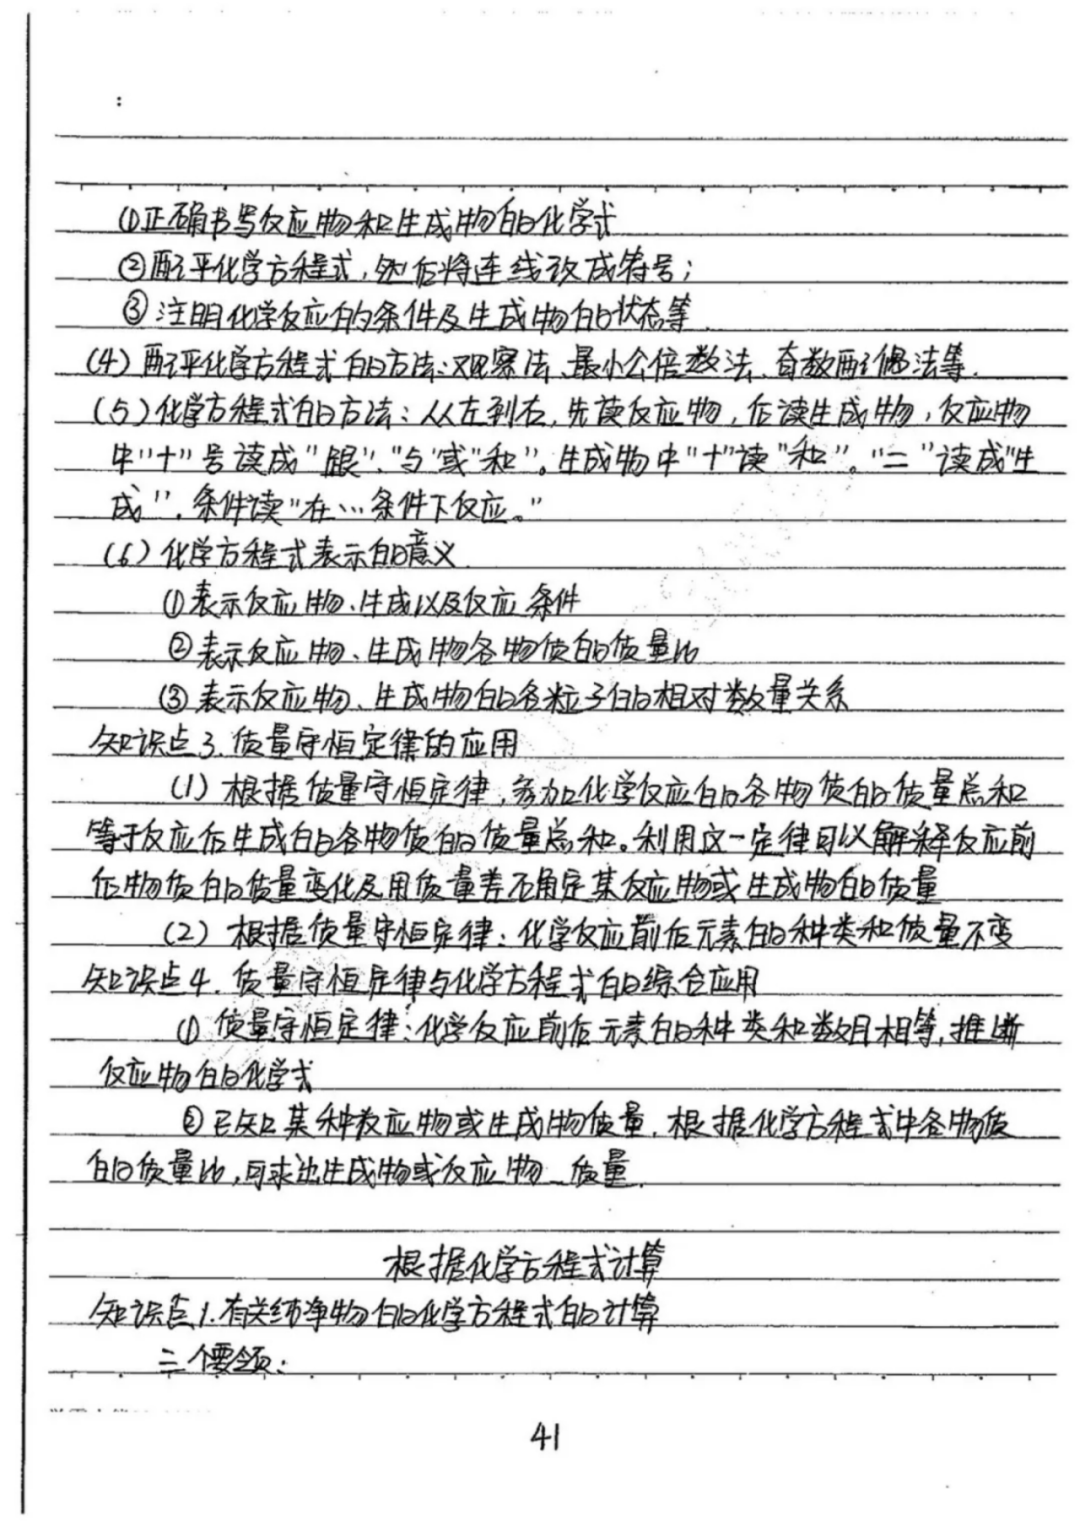 :
①正确书写反应物和生成物的化学式
②配平化学方程式,然后将连线改成符号;
③注明化学反应的条件及生成物的状态等.
(4)配平化学方程式的方法:观察法、最小公倍数法、奇数配偶法等.
(5)化学方程式的方法:从左到右,先读反应物,后读生成物,反应物
中"+"号读成"跟"、"与"或"和"。生成物中"+"读"和"。"="读成"生
成",条件读"在…条件下反应。"
(6)化学方程式表示的意义
①表示反应物、生成以及反应条件
②表示反应物、生成物各物质的质量比
③表示反应物、生成物的各粒子的相对数量关系
知识点3.质量守恒定律的应用
(1)根据质量守恒定律,参加化学反应的各物质的质量总和
等于反应后生成的各物质的质量总和。利用这一定律可以解释反应前
后物质的质量变化及用质量差不确定某反应物或生成物的质量
(2)根据质量守恒定律:化学反应前后元素的种类和质量不变
知识点4.质量守恒定律与化学方程式的综合应用
①质量守恒定律:化学反应前后元素的种类和数目相等,推断
反应物的化学式
②已知某种反应物或生成物质量,根据化学方程式中各物质
的质量比,可求出生成物或反应物 质量.
根据化学方程式计算
知识点1.有关纯净物的化学方程式的计算
三个要领:
41